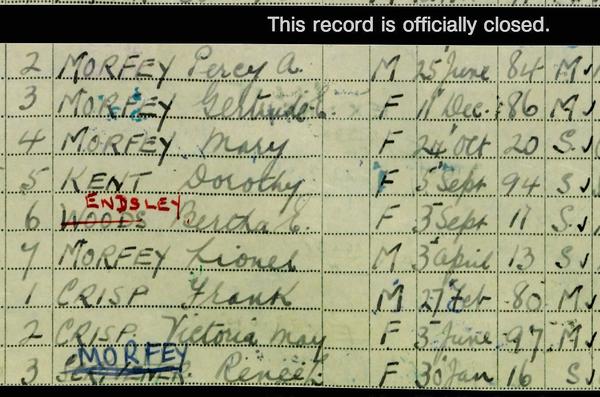 This record is officially closed.
2 MORFEY Percy A. M 25 June 84 M
3 MORFEY Gertrude E. F 11 Dec. 86 M
4 MORFEY Mary F 24 Oct 20 S
5 KENT Dorothy F 5 Sept 94 S
ENDSLEY
6 WOODS Bertha E. F 3 Sept 11 S
7 MORFEY Lionel M 3 April 13 S
1 CRISP Frank M 27 Feb 80 M
2 CRISP. Victoria May F 3 June 97 M
MORFEY
3 SCRIVENER. Renee F 30 Jan 16 S